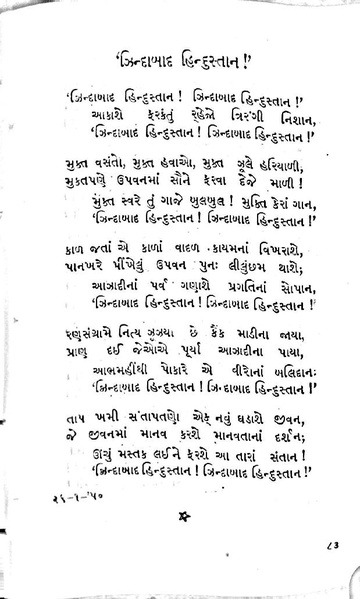 'ઝિન્દાબાદ હિન્દુસ્તાન !'
'ઝિન્દાબાદ હિન્દુસ્તાન ! ઝિન્દાબાદ હિન્દુસ્તાન !'
આકાશે ફરકંતું રહેજો ત્રિરંગી નિશાન,
'ઝિન્દાબાદ હિન્દુસ્તાન ! ઝિન્દાબાદ હિન્દુસ્તાન !'
મુક્ત વસંતો, મુક્ત હવાઓ, મુક્ત ઝૂલે હરિયાળી,
મુક્તપણે ઉપવનમાં સૌને ફરવા દેજે માળી !
મુક્ત સ્વરે તું ગાજે બુલબુલ ! મુક્તિ કેરાં ગાન,
'ઝિન્દાબાદ હિન્દુસ્તાન ! ઝિન્દાબાદ હિન્દુસ્તાન !'
કાળ જતાં એ કાળાં વાદળ કાયમનાં વિખરાશે,
પાનખરે પીંખેલું ઉપવન પુનઃ લીલુંછમ થાશે;
આઝાદીનાં પર્વ ગણાશે પ્રગતિનાં સોપાન,
'ઝિન્દાબાદ હિન્દુસ્તાન ! ઝિન્દાબાદ હિન્દુસ્તાન !'
રણસંગ્રામે નિત્ય ઝઝૂમ્યા છે કૈંક માડીના જાયા,
પ્રાણ દઈ જેઓએ પૂર્યા આઝાદીના પાયા,
આભમહીંથી પોકારે એ વીરોનાં બલિદાનઃ
'ઝિન્દાબાદ હિન્દુસ્તાન ! ઝિન્દાબાદ હિન્દુસ્તાન !'
તાપ ખમી સંતાપતણો એક નવું ઘડાશે જીવન,
જે જીવનમાં માનવ કરશે માનવતાનાં દર્શન;
ઊંચું મસ્તક લઈને ફરશે આ તારાં સંતાન !
'ઝિન્દાબાદ હિન્દુસ્તાન ! ઝિન્દાબાદ હિન્દુસ્તાન !'
૨૬-૧-'૫૦
૮૩